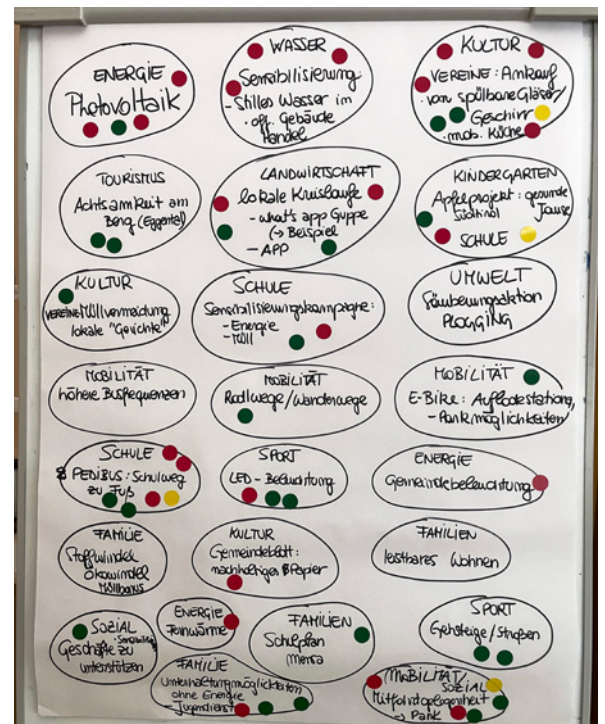 ENERGIE
Photovoltaik
WASSER
Sensibilisierung
- Stilles Wasser im
- öff. Gebäude
Handel
KULTUR
VEREINE: Ankauf
von spülbare Gläser/
Geschirr
- mob. Küche
TOURISMUS
Achtsamkeit am
Berg (Eggental)
LANDWIRTSCHAFT
lokale Kreisläufe
- what's app Guppe
(→ Beispiel
- APP
KINDERGARTEN
Apfelprojekt: gesunde
Südtirol Jause
SCHULE
KULTUR
VEREINE Müllvermeidung
lokale "Gerichte"
SCHULE
Sensibilisierungskampagne:
- Energie
- Müll
UMWELT
Säuberungsaktion
PLOGGING
MOBILITÄT
höhere Busfrequenzen
MOBILITÄT
Radlwege/Wanderwege
MOBILITÄT
E-Bike: Aufladestationen,
- Parkmöglichkeiten
SCHULE
PEDIBUS: Schulweg
zu Fuß
SPORT
LED - Beleuchtung
ENERGIE
Gemeindebeleuchtung
FAMILIE
Stoffwindel
Ökowindel
KULTUR
Gemeindeblatt:
nachhaltiges Papier
FAMILIEN
leistbares Wohnen
SOZIAL
Geschäfte zu
unterstützen
ENERGIE
Fernwärme
FAMILIEN
Schulplan
Mensa
SPORT
Gehsteige/Straßen
FAMILIE
Unterhaltungsmöglichkeiten
ohne Energie
- Jugenddienst
MOBILITÄT/
SOZIAL
Mitfahrgelegenheit
→ Park